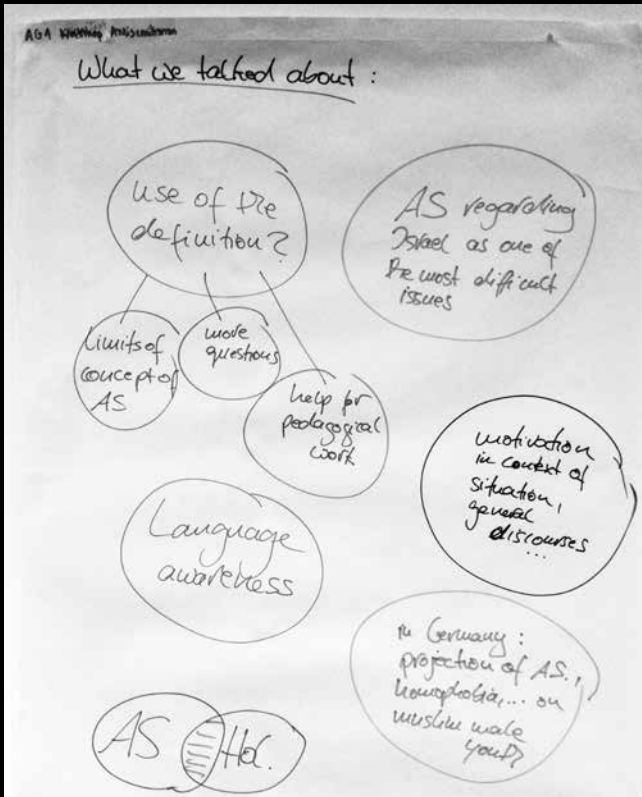 AGA Workshop Antisemitism
What we talked about :
use of the
definition?
Limits of
concept of
AS
more
questions
help for
pedagogical
work
AS regarding
Israel as one of
the most difficult
issues
motivation
in context of
situation,
general
discourses
...
Language
awareness
in Germany :
projection of AS.,
homophobia,... on
muslim male
youth
AS
Hol.